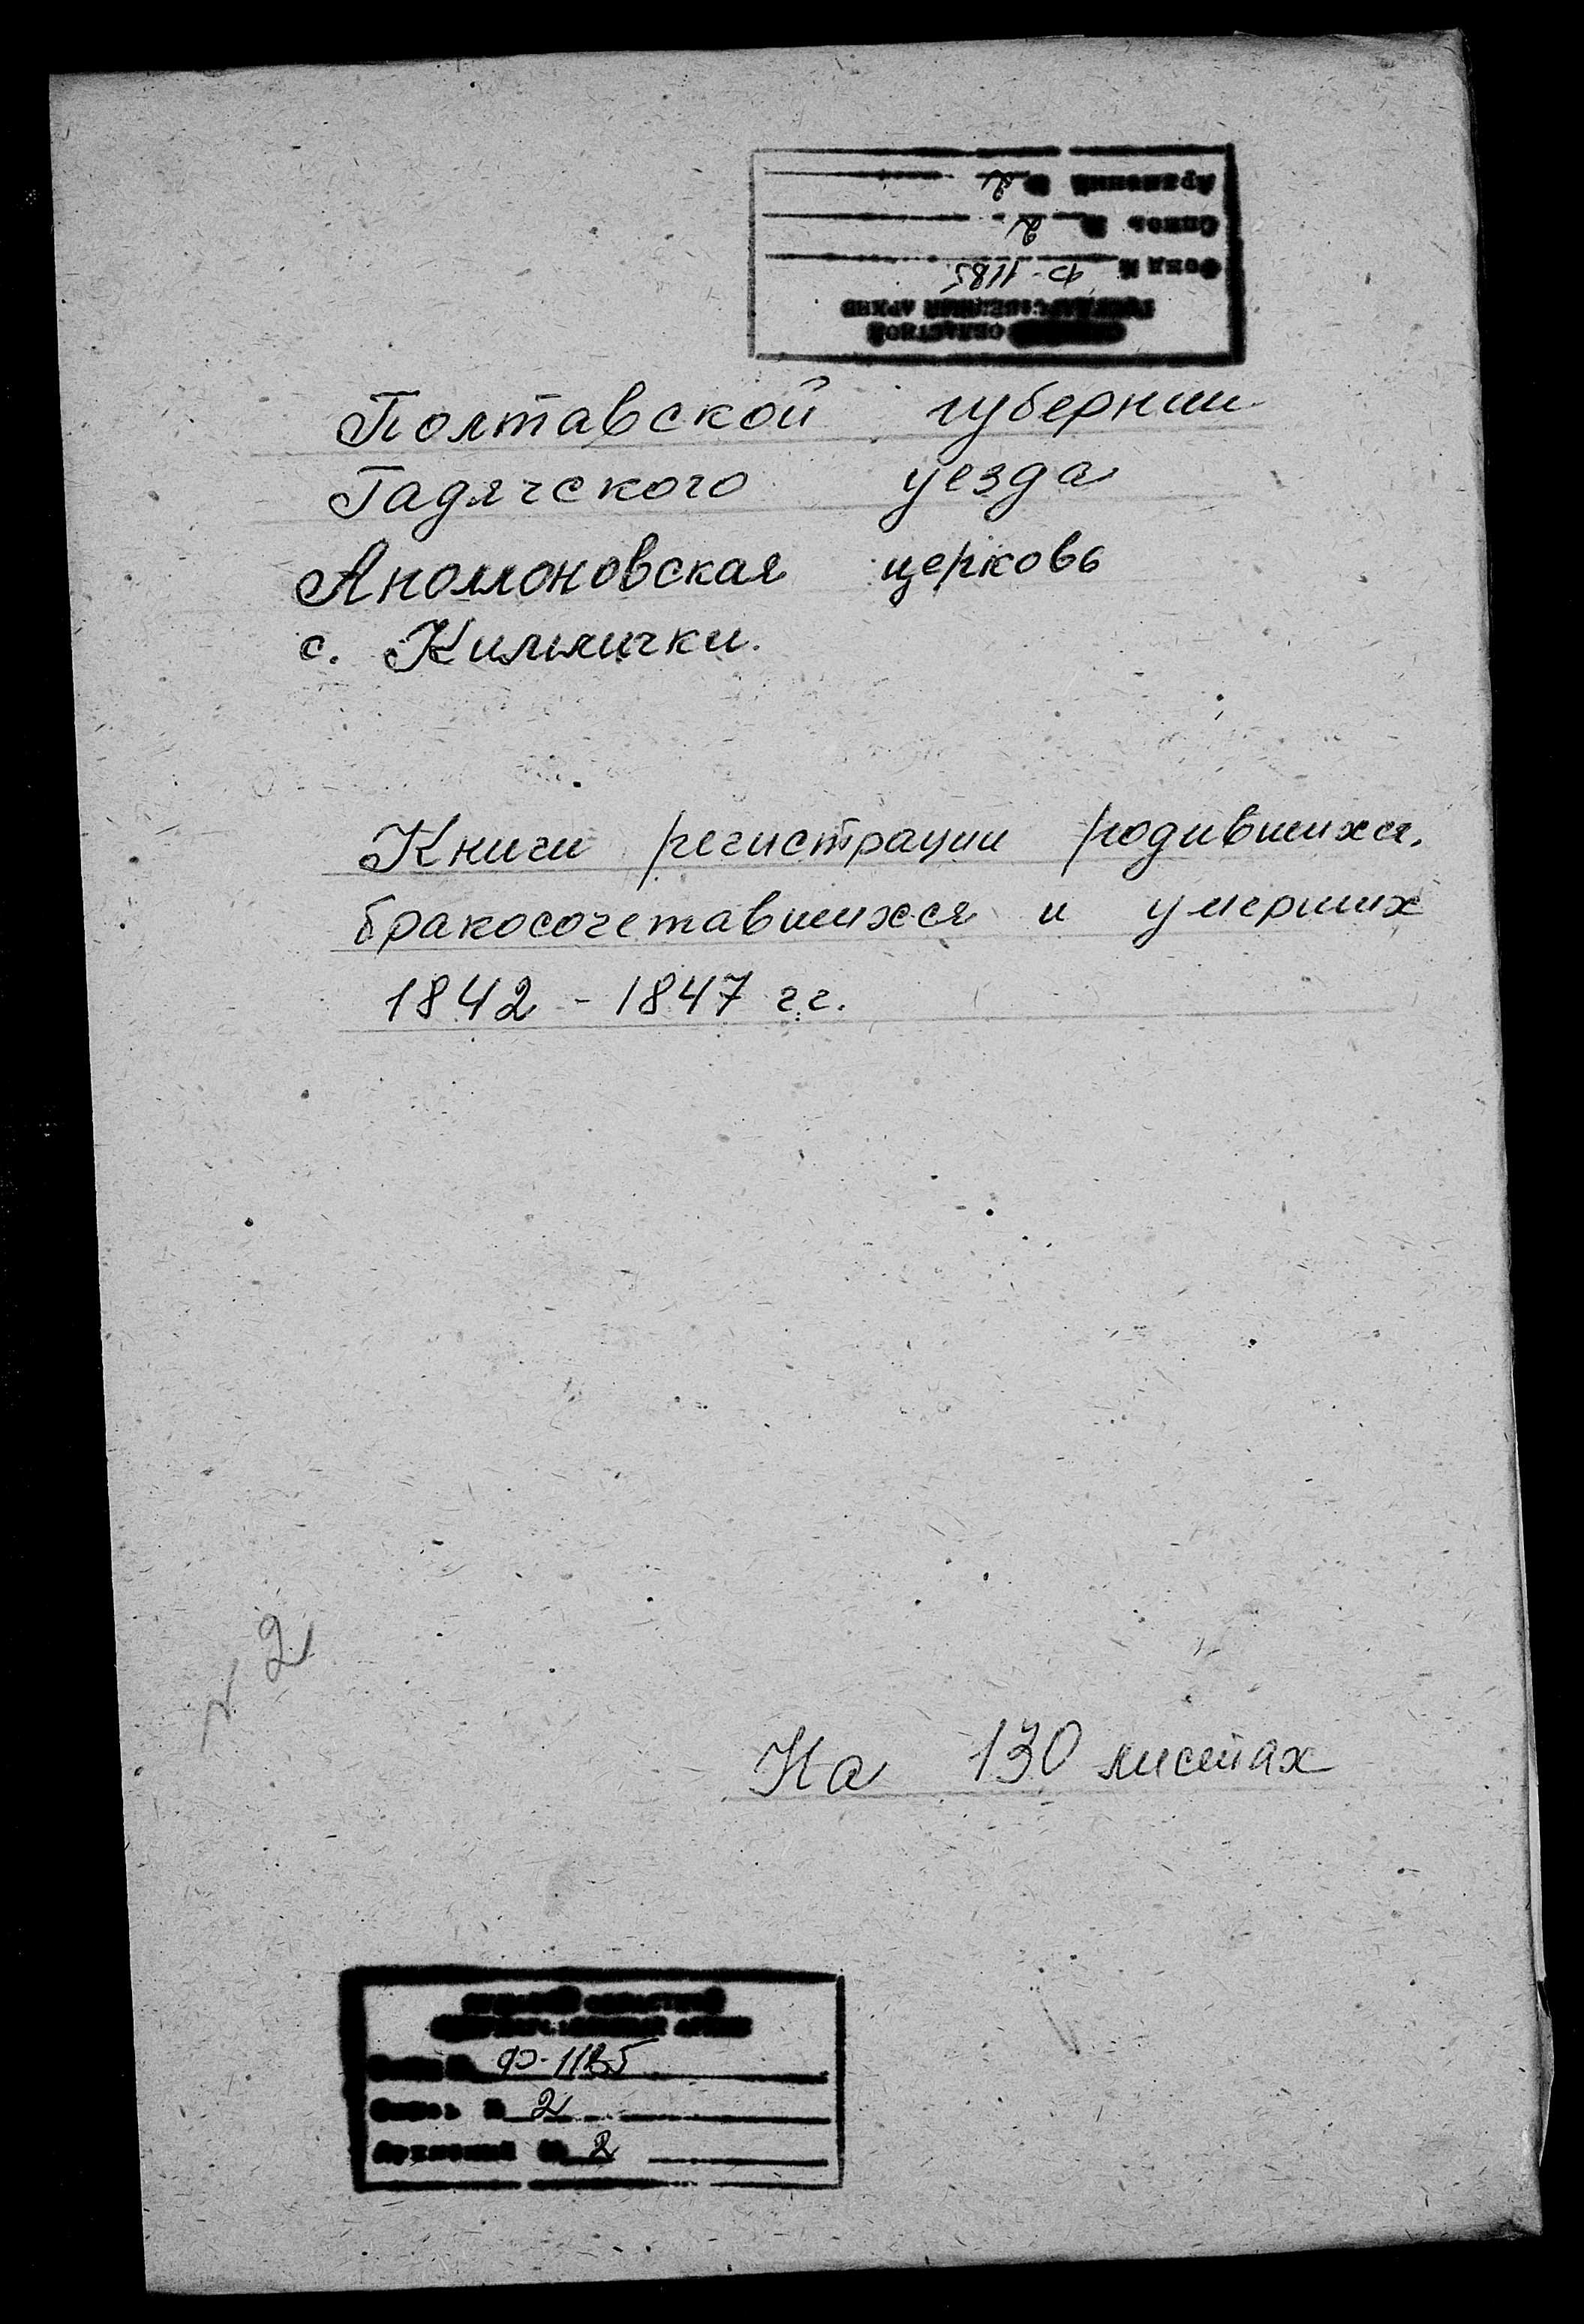 ОБЛАСТНОЙ
ГОСУДАРСТВЕННЫЙ АРХИВ
Фонд № Ф-1185
Опись № 2
Архивный № 2
Полтавской губернии
Гадячского уезда
Аполлоновская церковь
с. Кимлички.
Книги регистрации родившихся,
бракосочетавшихся и умерших
1842 - 1847 г.г.
N 2
На 130 листах
ОБЛАСТНОЙ
ГОСУДАРСТВЕННЫЙ АРХИВ
Фонд № Ф-1185
Опись № 2
Архивный № 2